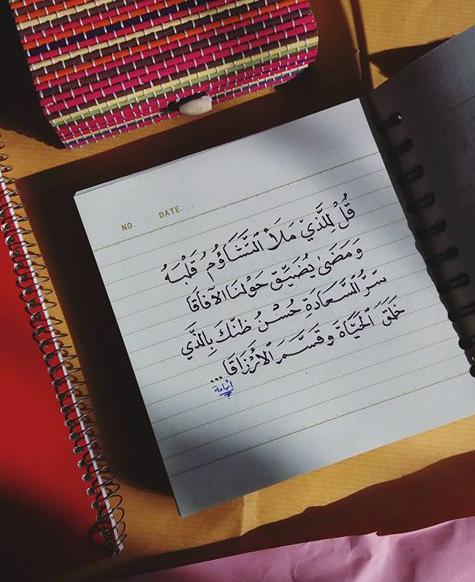 NO. DATE...
قُلْ لِلَّذِيْ مَلَأَ التَّشَاؤُمُ قَلْبَهُ
وَمَضَىٰ يُضَيِّقُ حَوْلَنَا الآفَاقَا
سِرُّ السَّعَادَةِ حُسْنُ ظَنِّكَ بِالَّذِي
خَلَقَ الْحَيَاةَ وَقَسَّمَ الأَرْزَاقَا...